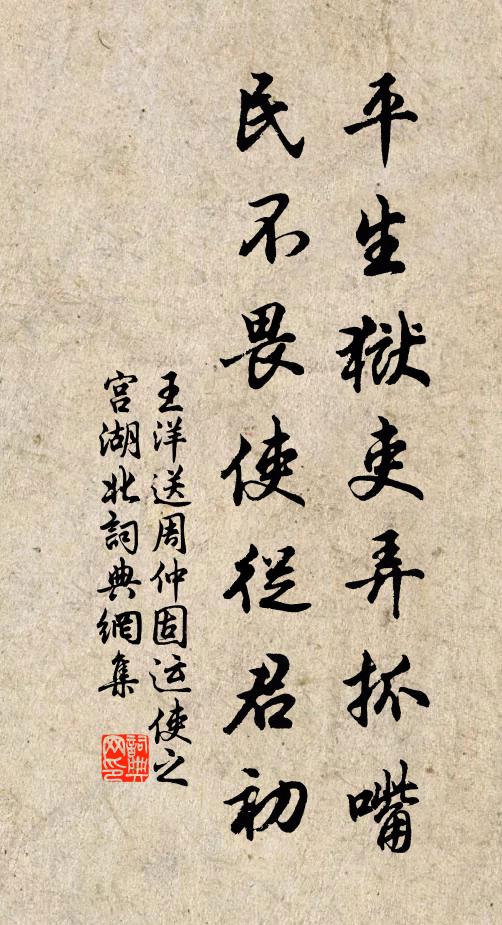 平生獄吏弄抓嘴
民不畏使從君初
王洋送周仲固运使之
宫湖北詞典網集
詞典網印